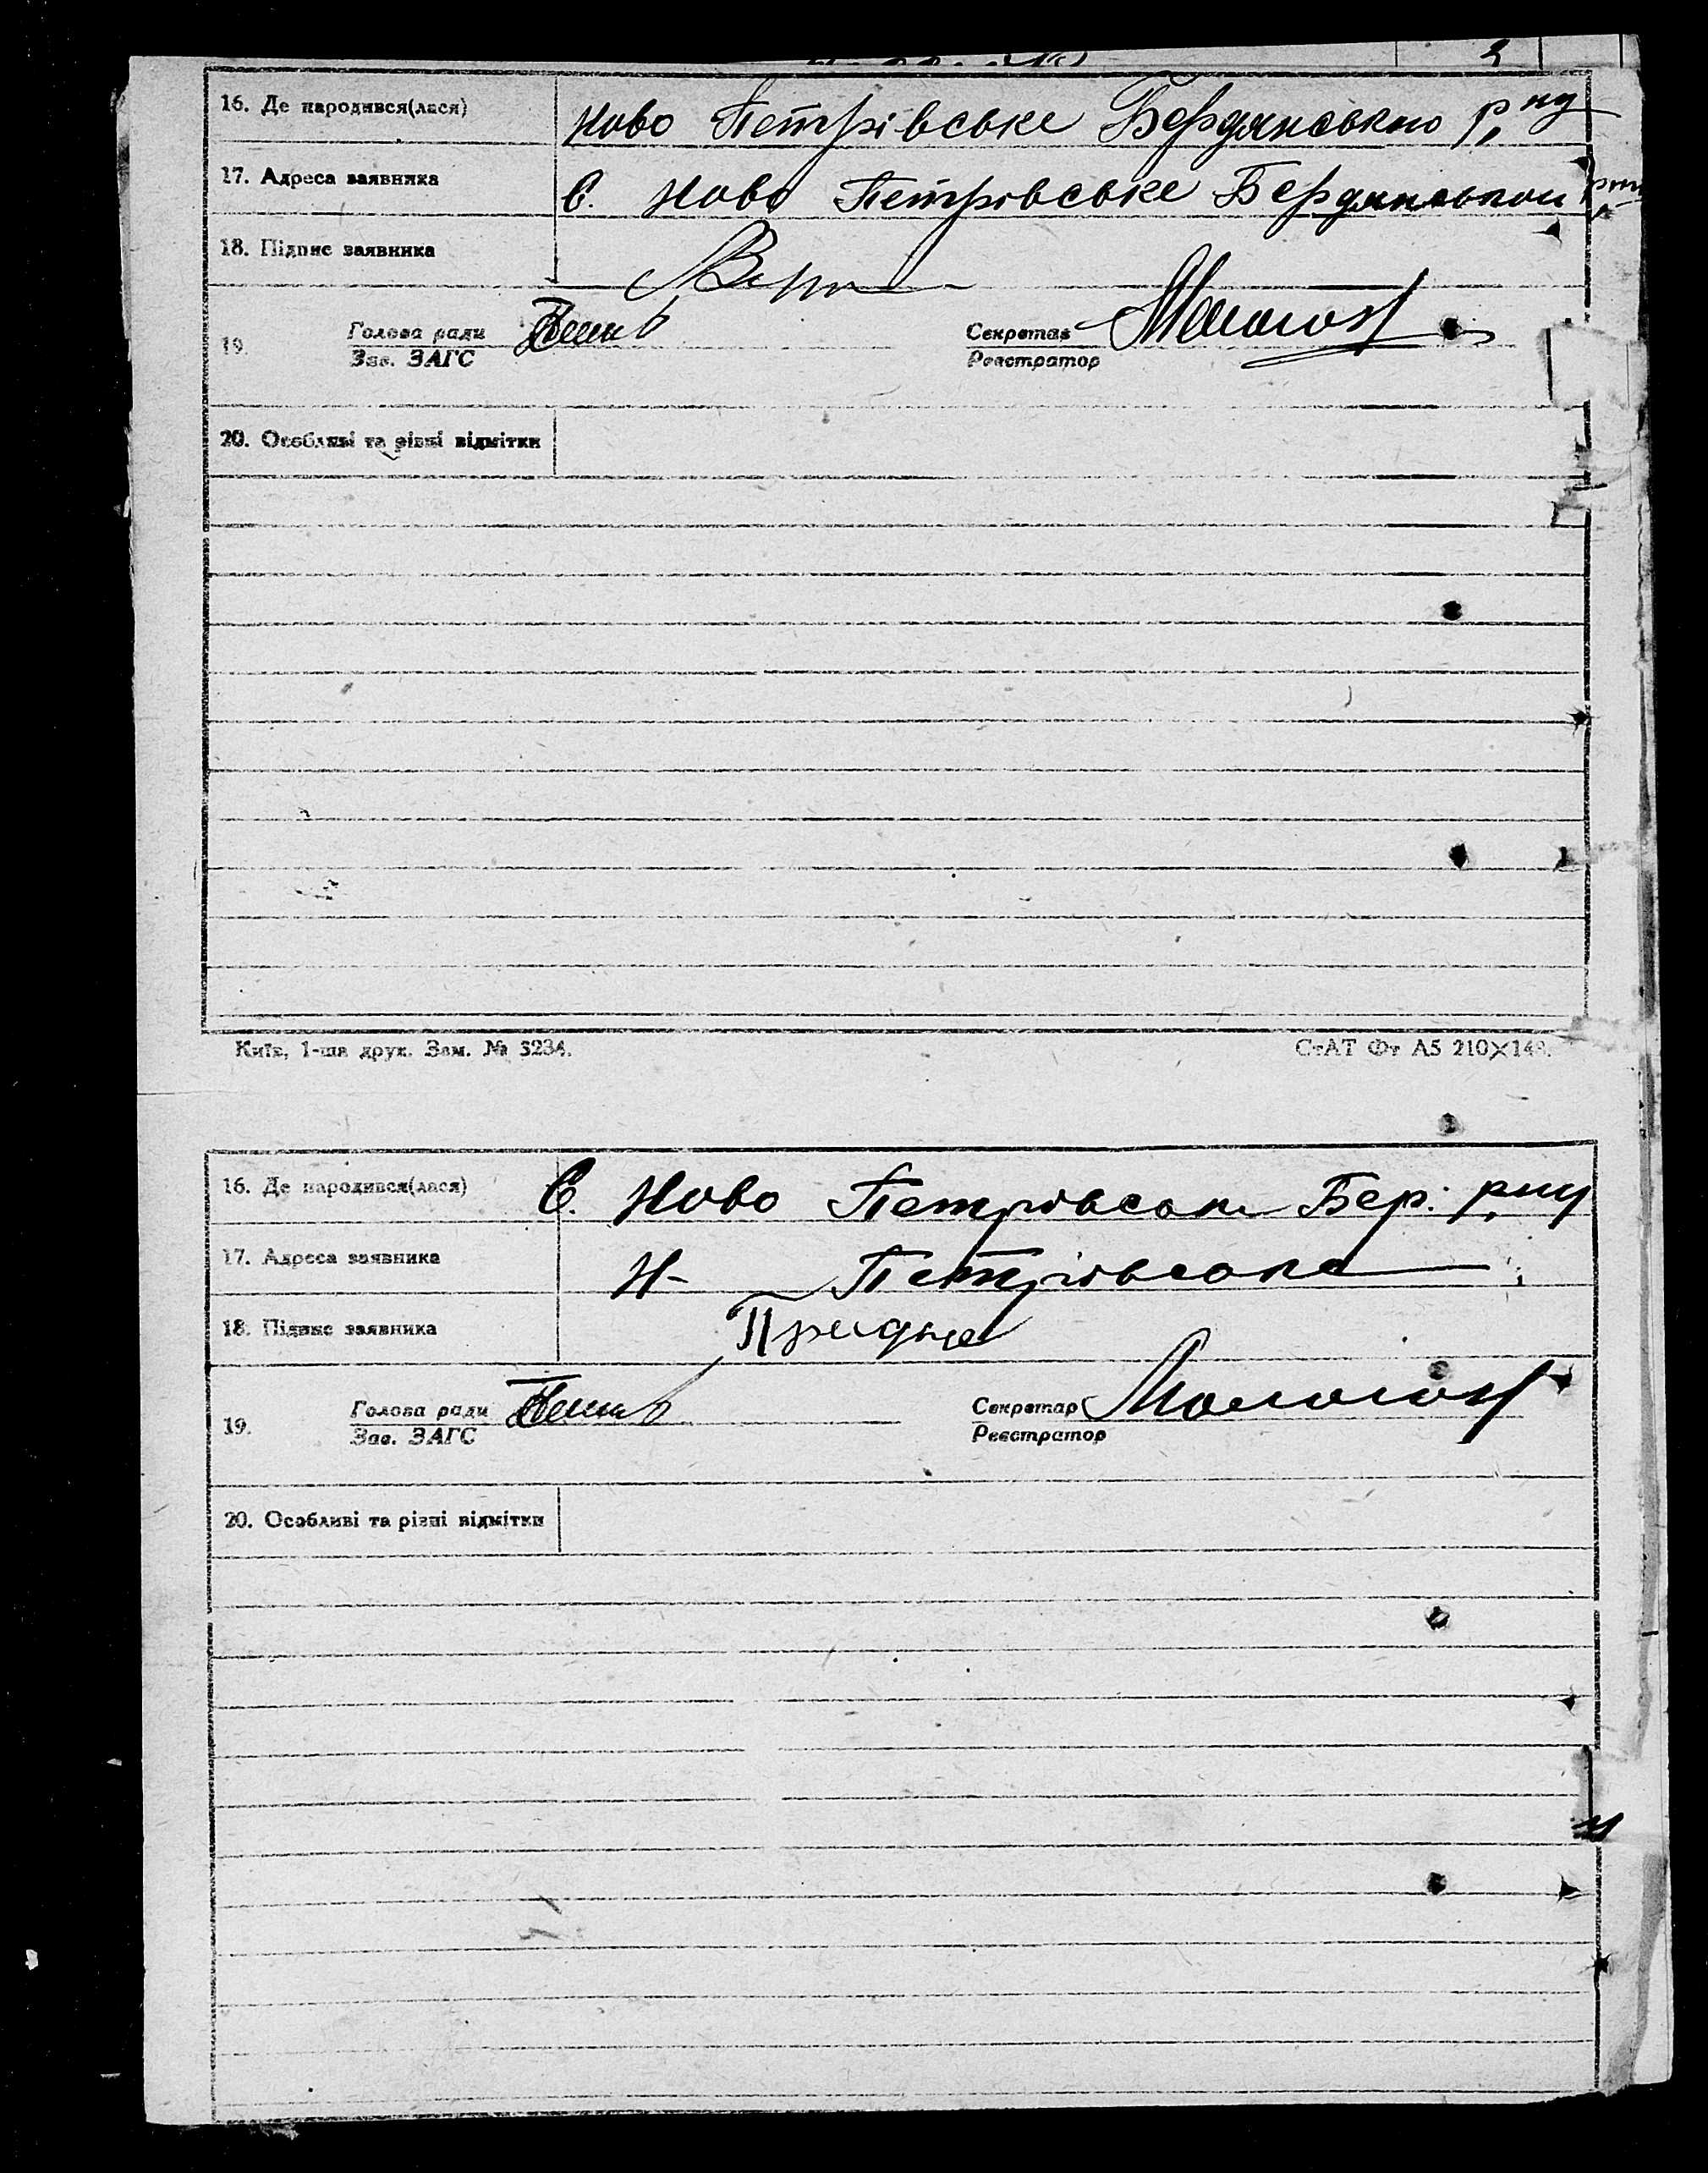 16. Де народився(лася) Ново Петрівське Бердянського р-ну
17. Адреса заявника С. Ново Петрівське Бердянського р-ну
18. Підпис заявника
19. Голова ради Секретар
Зав. ЗАГС Реєстратор
20. Особливі та різні відмітки
Київ, 1-ша друк. Зам. № 3234. СтАТ Фт А5 210×148.
16. Де народився(лася) С. Ново Петрівське Бер. р-ну
17. Адреса заявника Н- Петрівське
18. Підпис заявника
19. Голова ради Секретар
Зав. ЗАГС Реєстратор
20. Особливі та різні відмітки